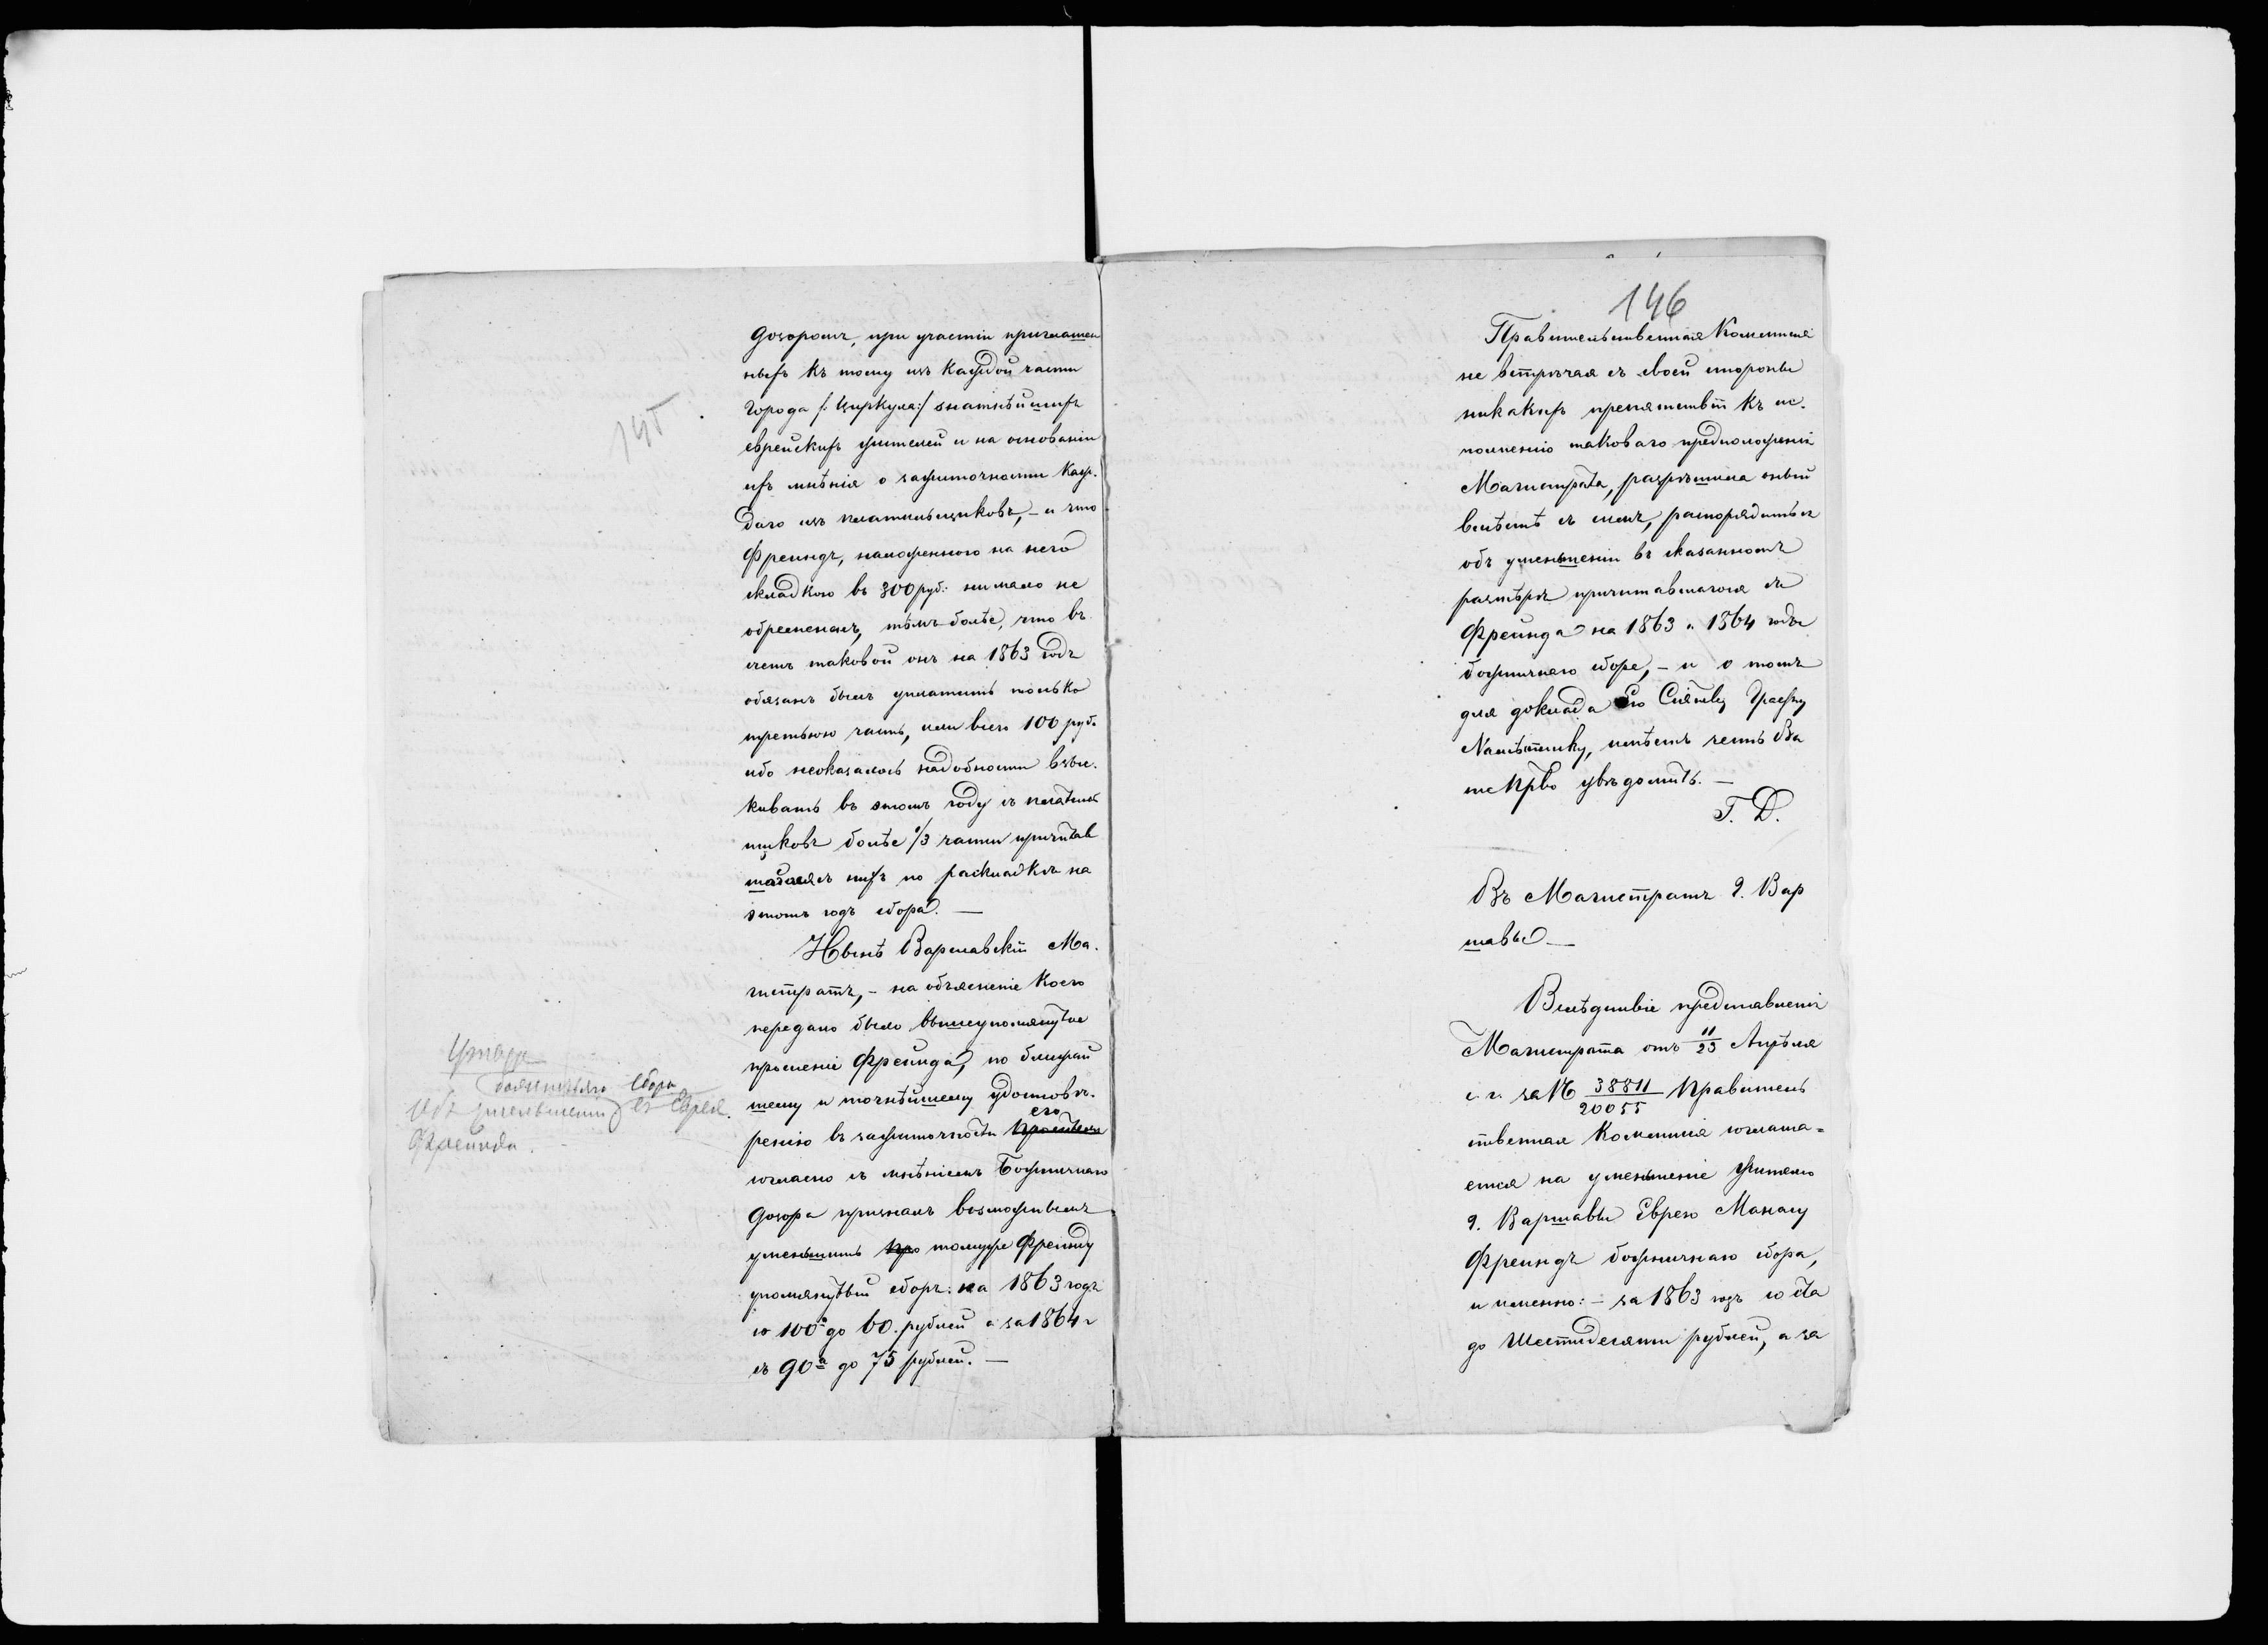 145
дозоромъ, при участіи приглашен
ныхъ къ тому изъ каждой части
города /: Циркула :/ знатнѣйшихъ
еврейскихъ жителей и на основаніи
ихъ мнѣнія о зажиточности каж-
даго изъ плательщиковъ, – и что
Фреиндъ, наложенною на него
складкою въ 300 руб. ни мало не
обремененъ, тѣмъ болѣе, что въ
счетъ таковой онъ на 1863 годъ
обязанъ былъ уплатить только
третью часть, или всего 100 руб.
ибо неоказалось надобности взыс-
кивать въ этомъ году съ платель
щиковъ болѣе 1/3 части причитав
шагося съ нихъ по раскладкѣ на
этотъ годъ сбора. —
Нынѣ Варшавскій Ма-
гистратъ, – на объясненіе коего
передано было вышеупомянутое
прошеніе Фреинда, по ближай
шему и точнѣйшему удостовѣ-
его
ренію въ зажиточности просителя
согласно съ мнѣніемъ Божничнаго
Дозора призналъ возможнымъ
уменьшить про томуже Фреинду
упомянутый сборъ: на 1863 годъ
со 100а до 60. рублей а за 1864 г
съ 90а до 75 рублей. —
божничнаго сбора
Объ уменьшеніи съ Еврея
Фреинда.
146
Правительственная Коммисія
не встрѣчая съ своей стороны
никакихъ препятствій къ ис-
полненію таковаго предположенія
Магистрата, разрѣшила оный
вмѣстѣ съ симъ, распорядиться
объ уменьшеніи въ сказанномъ
размѣрѣ причитавшагося съ
Фреинда на 1863 и 1864 годы
божничнаго сбора, – и о томъ
для доклада Его Сіятву Графу
Намѣстнику, имѣетъ честь Ва
ше Прво увѣдомить. —
Г. Д.
Въ Магистратъ г. Вар
шавы —
Вслѣдствіе представленія
Магистрата отъ 11/23 Апрѣля
с. г. за № 38811/20055 Правитель
ственная Коммисія соглаша=
ется на уменьшеніе жителю
г. Варшавы Еврею Манасу
Фреиндъ божничнаго сбора,
и именно: – за 1863 годъ со ста
до Шестидесяти рублей, а за